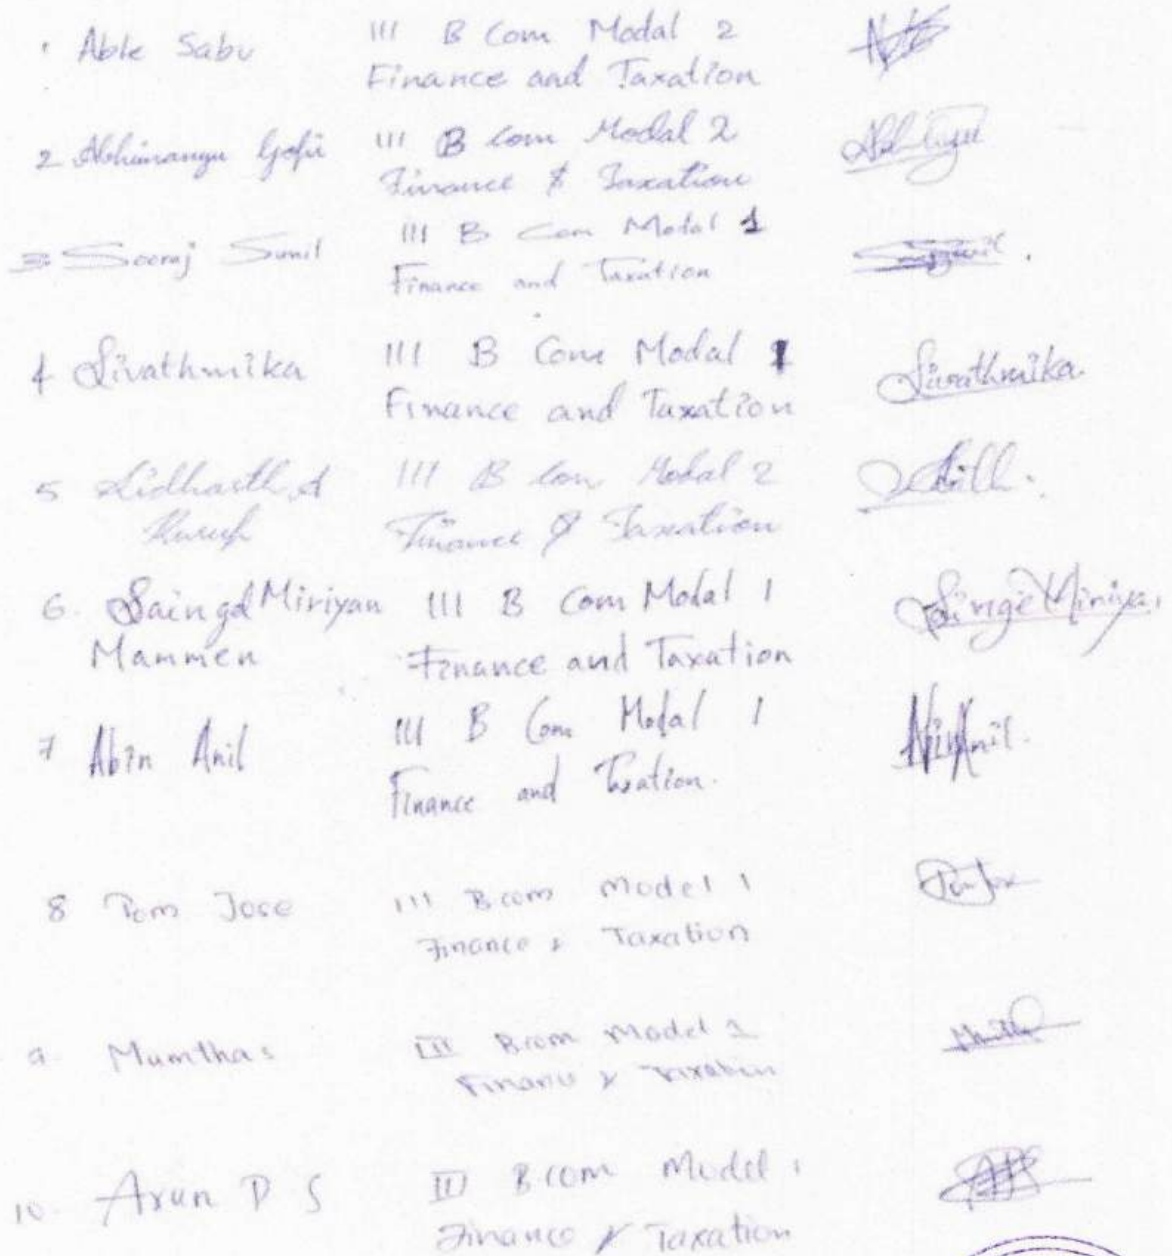 1 Able Sabu III B Com Modal 2
Finance and Taxation
2 Abhimanyu Gopi III B Com Modal 2
Finance & Taxation
3 Sooraj Sunil III B Com Modal 1
Finance and Taxation
4 Sivathmika III B Com Modal 1 Sivathmika
Finance and Taxation
5 Sidharth A III B Com Modal 2
Kurup Finance & Taxation
6. Miriyan III B Com Modal 1
Mammen Finance and Taxation
7 Abin Anil III B Com Modal 1
Finance and Taxation.
8 Tom Jose III Bcom Model 1
Finance & Taxation
9. Mumthas III Bcom Model 2
Finance & Taxation
10. Arun D S III Bcom Model 1
Finance & Taxation